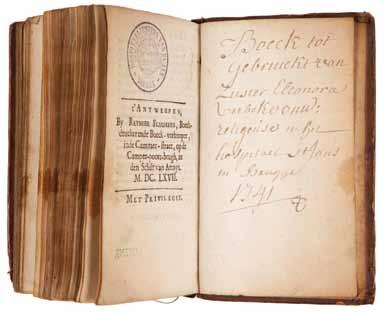 t'ANTWERPEN,
By REYNIER SLEGHERS, Boeck-
drucker ende Boeck-verkooper,
inde Cammer-straet, op de
Camper-poort-brugh, in
den Schilt van Artoys.
M. DC. LXVII.
MET PRIVILEGIE.
Boeck tot
gebruickt van
Zuster Eleonora
religieuse in het
hospitael st Jans
in Brugge
1741